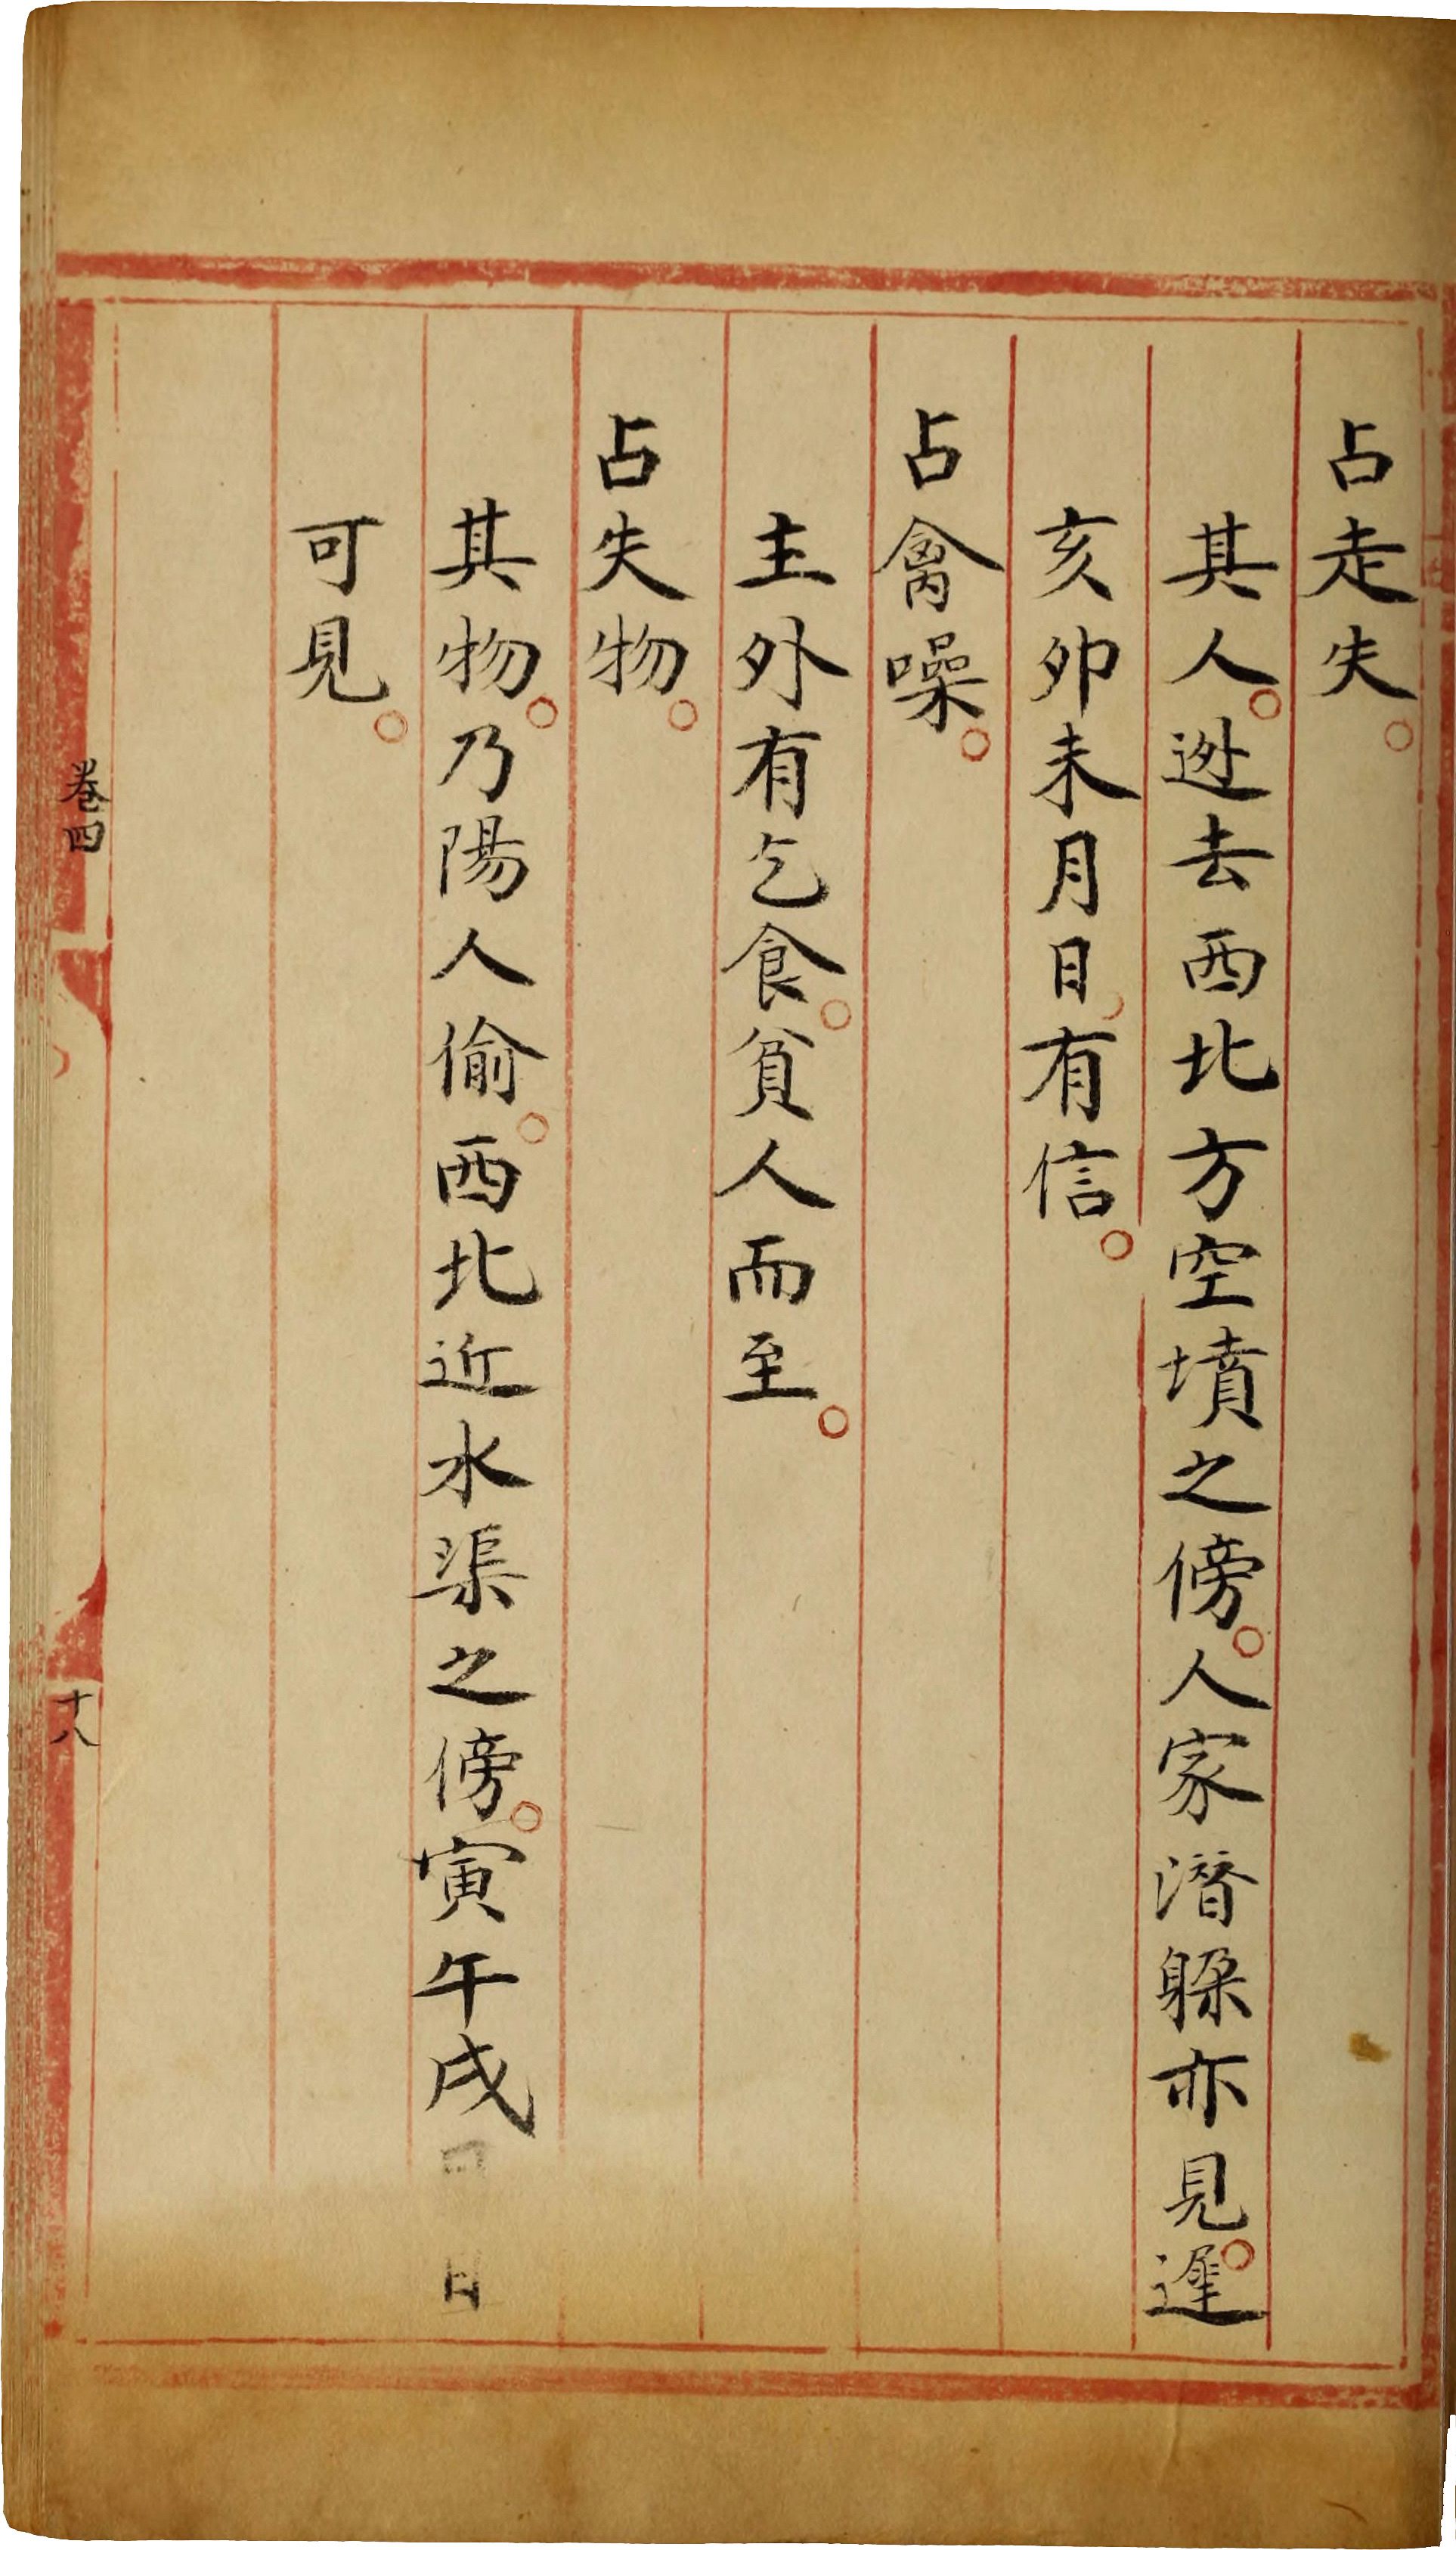 占走失。
其人。迯去西北方空墳之傍。人家潛躱亦見。遲
亥卯未月日。有信。
占禽噪。
主外有乞食。貧人而至。
占失物。
其物。乃陽人偷。西北近水渠之傍。寅午戌日
可見。
卷四
十八